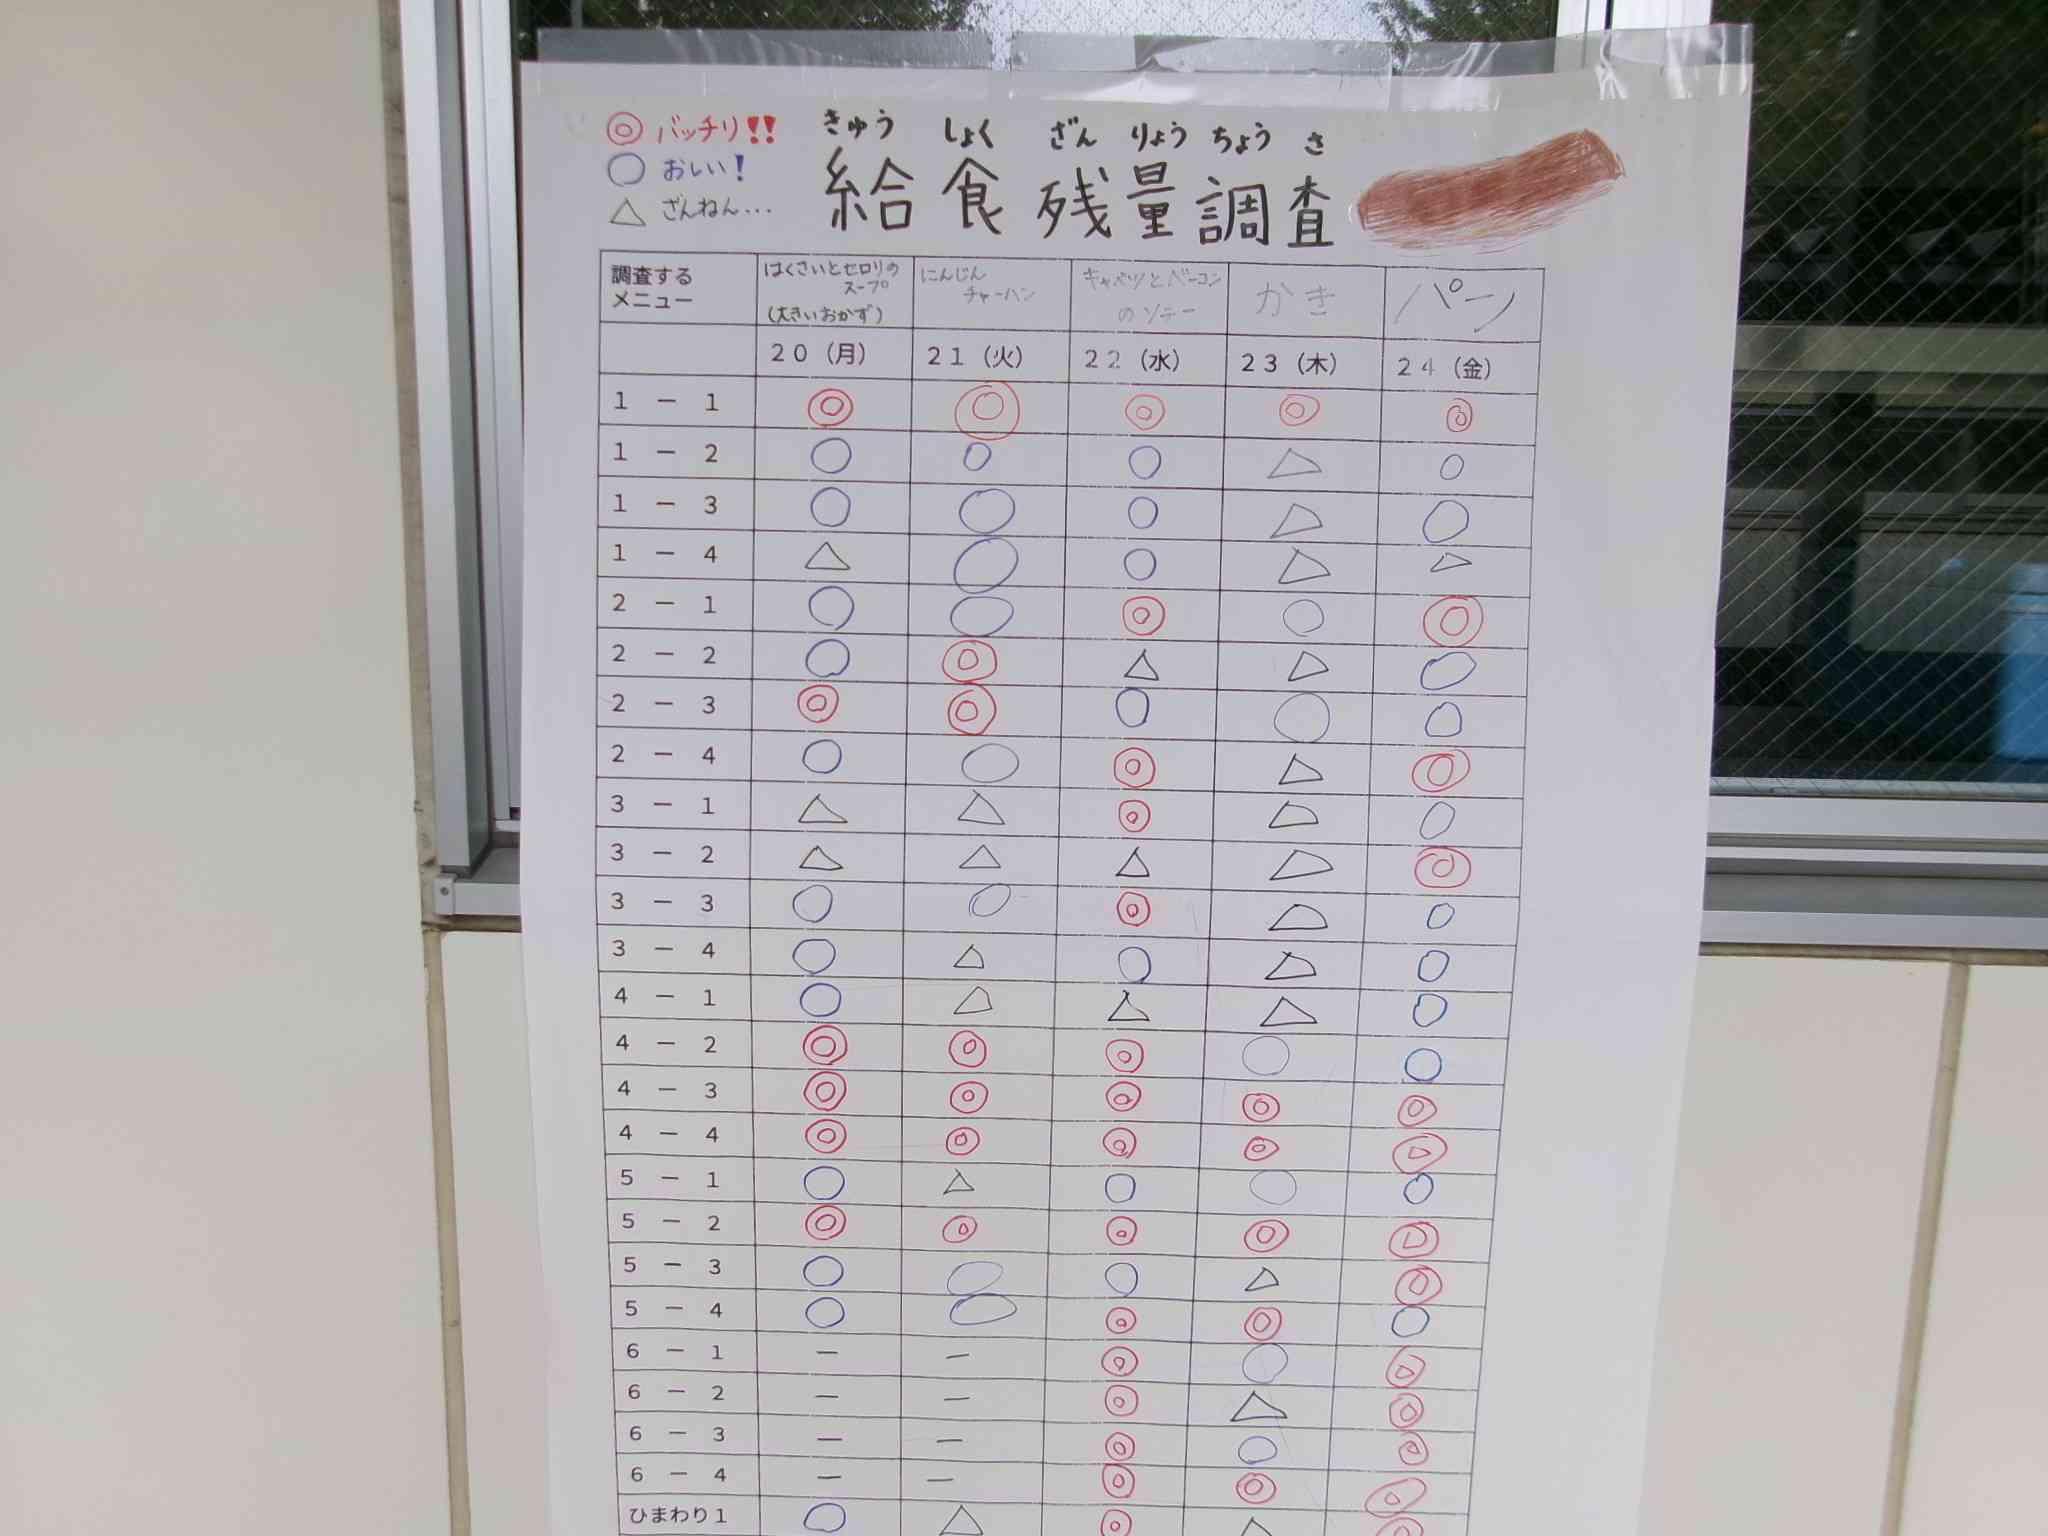 ◎ バッチリ!!
○ おしい!
△ ざんねん...
きゅう しょく ざん りょう ちょう さ
給食残量調査
調査するメニュー はくさいとセロリのスープ(大きいおかず) にんじんチャーハン キャベツとベーコンのソテー かき パン
20(月) 21(火) 22(水) 23(木) 24(金)
1－1 ◎ ◎ ◎ ◎ ◎
1－2 ○ ○ ○ △ ○
1－3 ○ ○ ○ △ ○
1－4 △ ○ ○ △ △
2－1 ○ ○ ◎ ○ ◎
2－2 ○ ◎ △ △ ○
2－3 ◎ ◎ ○ ○ ○
2－4 ○ ○ ◎ △ ◎
3－1 △ △ ◎ △ ○
3－2 △ △ △ △ ◎
3－3 ○ ○ ◎ △ ○
3－4 ○ △ ○ △ ○
4－1 ○ △ △ △ ○
4－2 ◎ ◎ ◎ ○ ○
4－3 ◎ ◎ ◎ ◎ ◎
4－4 ◎ ◎ ◎ ◎ ◎
5－1 ○ △ ○ ○ ○
5－2 ◎ ◎ ◎ ◎ ◎
5－3 ○ ○ ○ △ ◎
5－4 ○ ○ ◎ ◎ ○
6－1 － － ◎ ○ ◎
6－2 － － ◎ △ ◎
6－3 － － ◎ ○ ◎
6－4 － － ◎ ◎ ◎
ひまわり1 ○ △ ◎ △ ◎